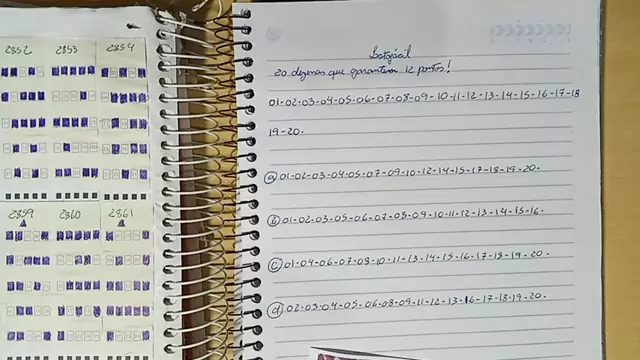 2852 2853 2854
2859 2860 2861
Lotofácil
20 dezenas que garantem 12 pontos!
01-02-03-04-05-06-07-08-09-10-11-12-13-14-15-16-17-18
19-20.
a 01-02-03-04-05-07-09-10-12-14-15-17-18-19-20.
b 01-02-03-05-06-07-08-09-10-11-12-13-14-15-16.
c 01-04-06-07-08-10-11-13-14-15-16-17-18-19-20.
d 02-03-04-05-06-08-09-11-12-13-16-17-18-19-20.